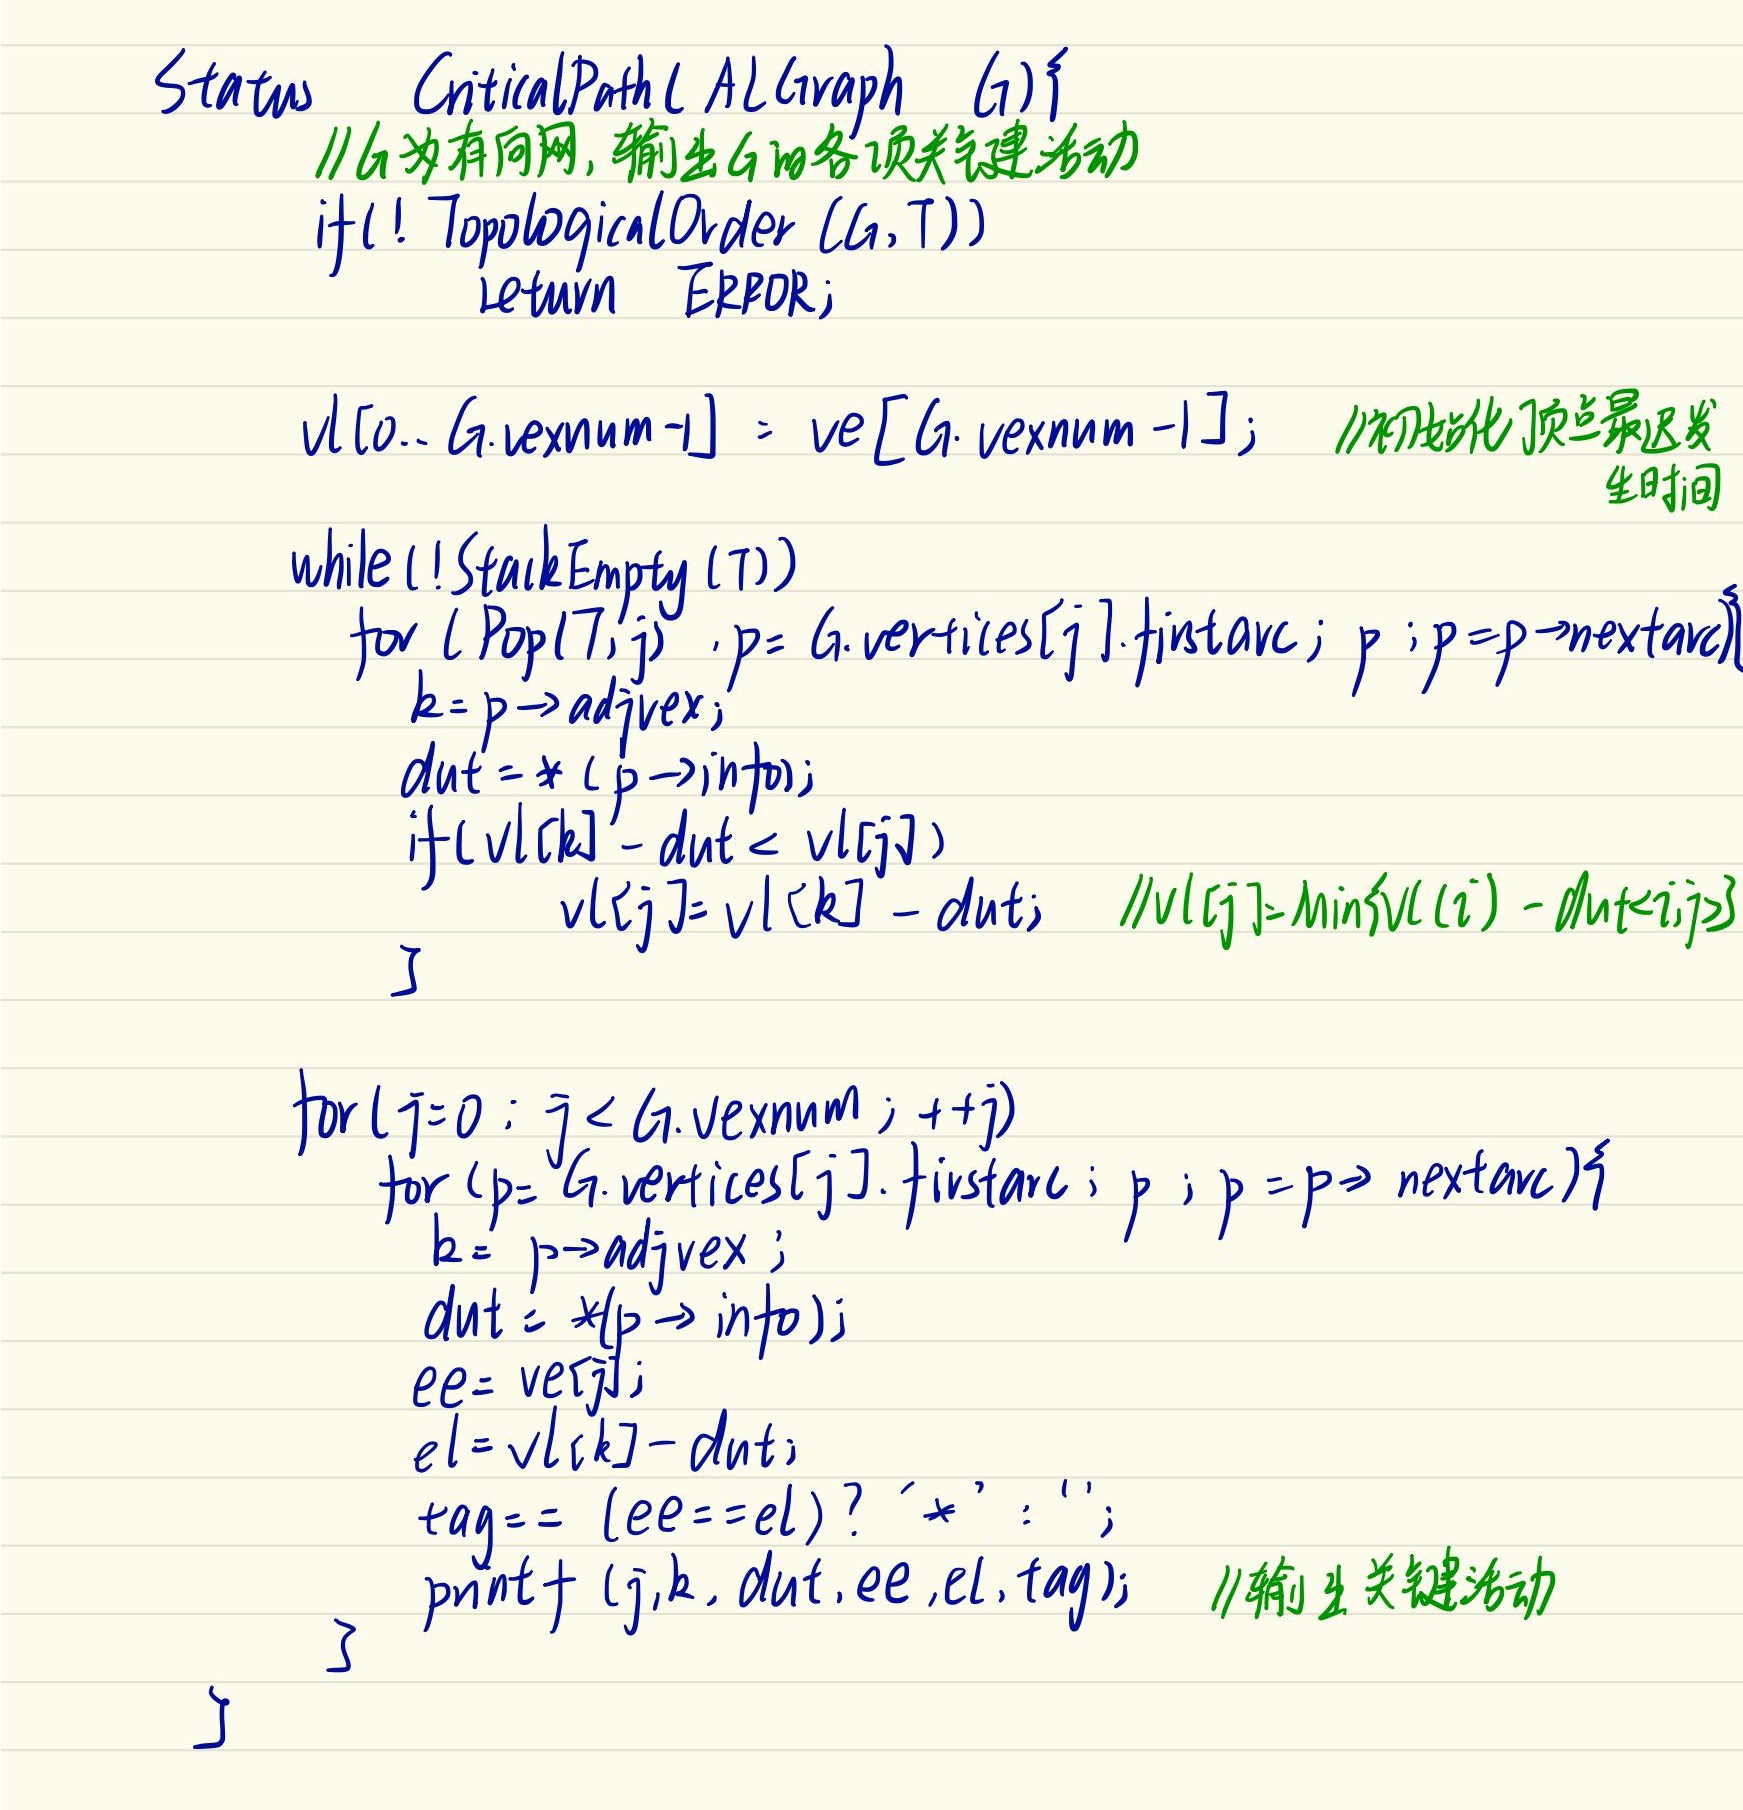 Status CriticalPath(ALGraph G){
//G为有向网,输出G的各项关键活动
if(!TopologicalOrder(G,T))
return ERROR;
vl[0..G.vexnum-1] = ve[G.vexnum-1]; //初始化顶点最迟发
生时间
while(!StackEmpty(T))
for(Pop(T,j),p=G.vertices[j].firstarc; p; p=p→nextarc){
k=p→adjvex;
dut=*(p→info);
if(vl[k]-dut<vl[j])
vl[j]=vl[k]-dut; //vl[j]=Min{vl(i)-dut<i,j>}
}
for(j=0; j<G.vexnum; ++j)
for(p=G.vertices[j].firstarc; p; p=p→nextarc){
k=p→adjvex;
dut=*(p→info);
ee=ve[j];
el=vl[k]-dut;
tag==(ee==el)?'*':'';
printf(j,k,dut,ee,el,tag); //输出关键活动
}
}